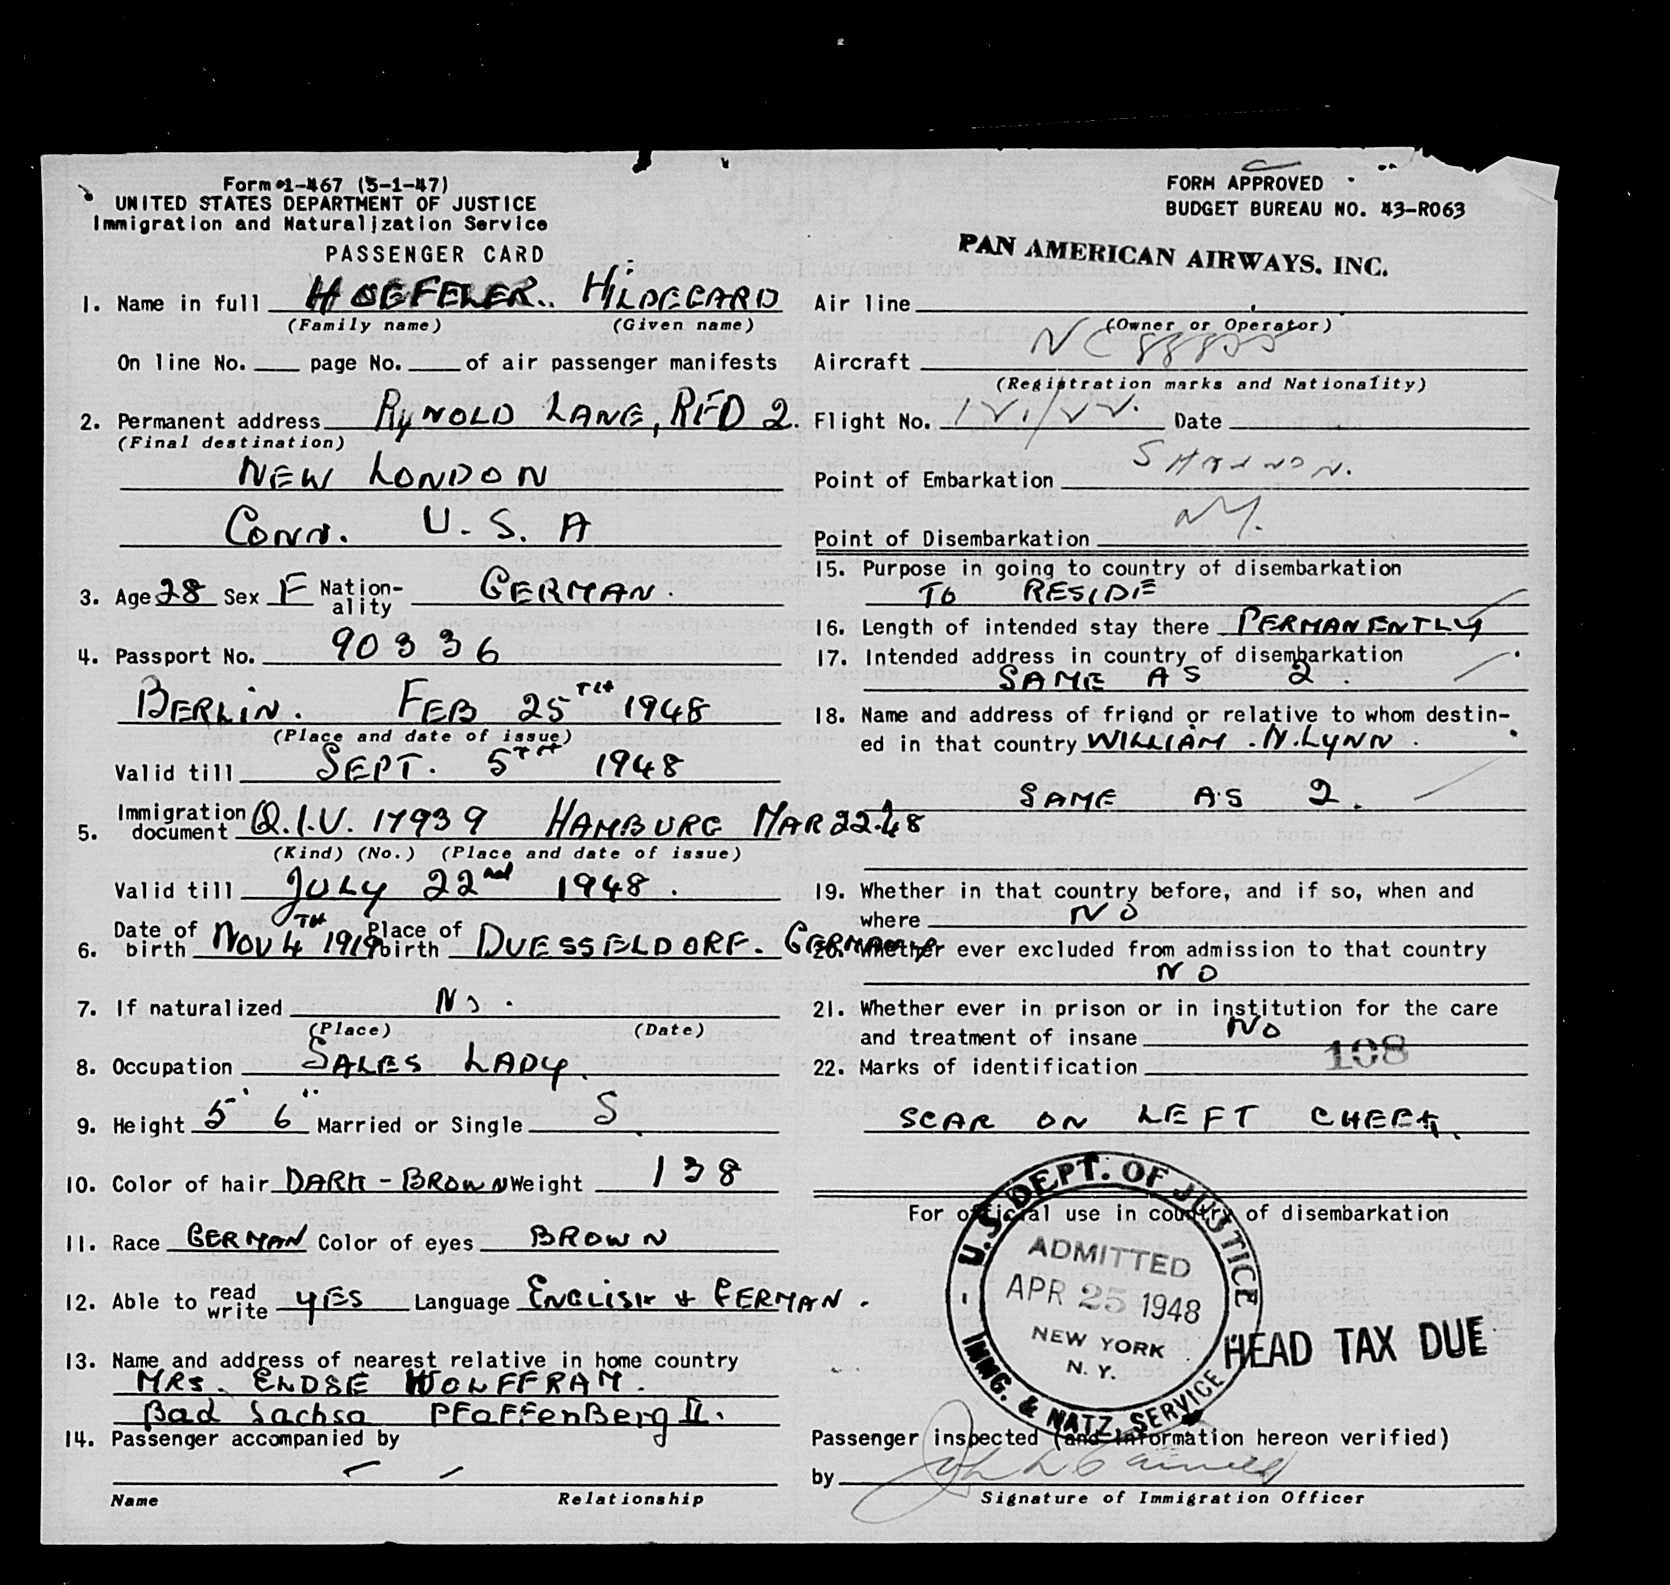 Form I-467 (5-1-47)
UNITED STATES DEPARTMENT OF JUSTICE
Immigration and Naturalization Service
PASSENGER CARD
FORM APPROVED
BUDGET BUREAU NO. 43-R063
PAN AMERICAN AIRWAYS. INC.
1. Name in full HOEFELER.. HILDEGARD
(Family name) (Given name)
On line No. page No. of air passenger manifests
2. Permanent address RyNOLD LANE, RFD 2.
(Final destination)
NEW LONDON
CONN. U.S.A
3. Age 28 Sex F Nation-
ality GERMAN.
4. Passport No. 90336
BERLIN. FEB 25TH 1948
(Place and date of issue)
Valid till SEPT. 5TH 1948
5. Immigration
document Q.I.V. 17939 HAMBURG MAR 22.48
(Kind) (No.) (Place and date of issue)
Valid till JULY 22nd 1948.
6. Date of
birth NOV 4TH 1919 Place of
birth DUESSELDORF. GERMANY
7. If naturalized No.
(Place) (Date)
8. Occupation SALES LADY.
9. Height 5' 6" Married or Single S.
10. Color of hair DARK-BROWN Weight 138
11. Race GERMAN Color of eyes BROWN
12. Able to read
write YES Language ENGLISH + GERMAN.
13. Name and address of nearest relative in home country
MRS. WOLFFRAM.
Bad Sachsa PFaFFenBerg II.
14. Passenger accompanied by
Name Relationship
Air line
(Owner or Operator)
Aircraft
(Registration marks and Nationality)
Flight No. Date
Point of Embarkation SHANNON.
Point of Disembarkation NY.
15. Purpose in going to country of disembarkation
TO RESIDE
16. Length of intended stay there PERMANENTLY
17. Intended address in country of disembarkation
SAME AS 2.
18. Name and address of friend or relative to whom destin-
ed in that country WILLIAM.N.LYNN.
SAME AS 2.
19. Whether in that country before, and if so, when and
where NO
20. Whether ever excluded from admission to that country
NO
21. Whether ever in prison or in institution for the care
and treatment of insane NO
108
22. Marks of identification
SCAR ON LEFT CHEEK.
For official use in country of disembarkation
U.S. DEPT. OF JUSTICE
ADMITTED
APR 25 1948
NEW YORK
N. Y.
IMMG. & NATZ. SERVICE
HEAD TAX DUE
Passenger inspected (and information hereon verified)
by
Signature of Immigration Officer